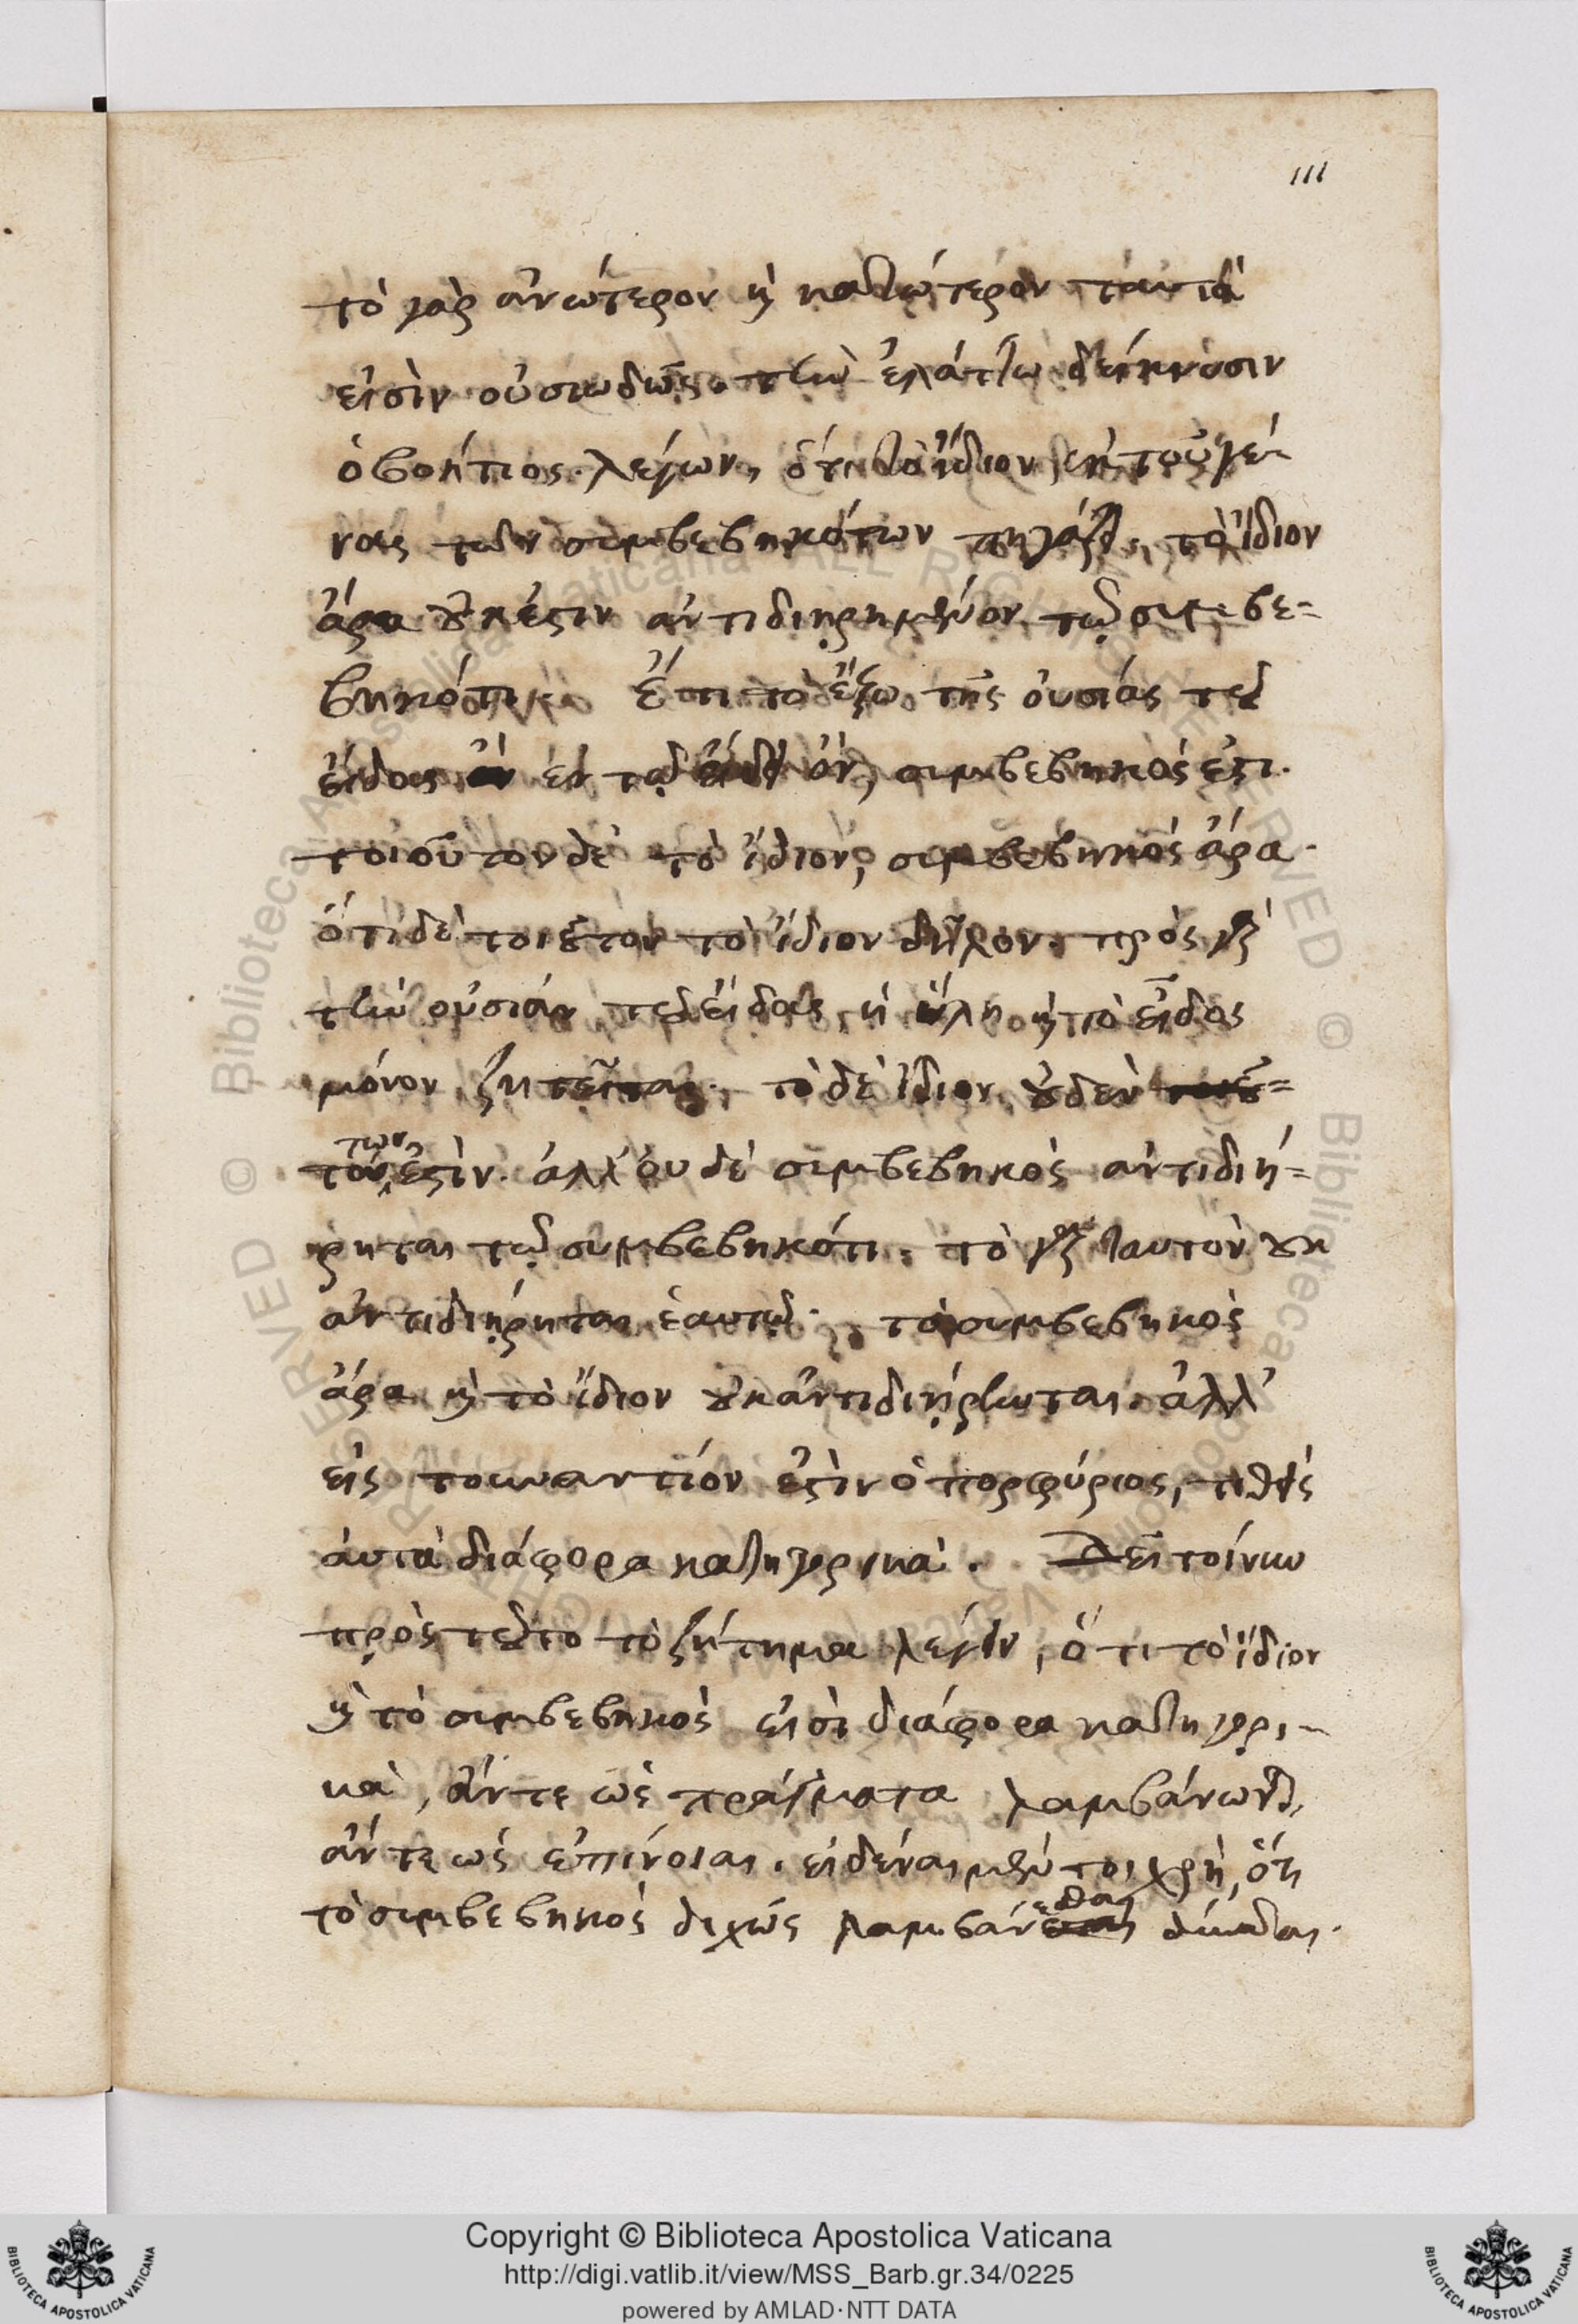 111
τὸ γὰρ ἀνώτερον καὶ κατώτερον ταυτά
εἰσὶν οὐσιωδῶς. τὴν ἐλάττω δείκνυσιν
ὁ βοήτιος λέγων, ὅτι τὸ ἴδιον ἐκ τοῦ γέ-
νους τῶν συμβεβηκότων πηγάζει, τὸ ἴδιον
ἄρα οὐκ ἔστιν ἀντιδιῃρημένον τῷ συμβε=
βηκότι. ἔτι τὸ ἔξω τῆς οὐσίας τοῦ
εἴδους ἐν τῷ εἴδει ὂν, συμβεβηκός ἐστι.
τοιοῦτον δὲ τὸ ἴδιον, συμβεβηκός ἄρα.
ὅτι δὲ τοιοῦτον τὸ ἴδιον δῆλον. πρὸς γὰρ
τὴν οὐσίαν τοῦ εἴδους, ἡ ὕλη καὶ τὸ εἶδος
μόνον ζητεῖται. τὸ δὲ ἴδιον, οὐδὲν τού=
των ἐστὶν. ἀλλ' οὐδὲ συμβεβηκὸς ἀντιδιή=
ρηται τῷ συμβεβηκότι. τὸ γὰρ ταυτὸν οὐκ
ἀντιδιῄρηται ἑαυτῷ. τὸ συμβεβηκὸς
ἄρα καὶ τὸ ἴδιον οὐκ ἀντιδιῄρηνται. ἀλλ'
εἰς τοὐναντίον ἐστὶν ὁ πορφύριος, τιθεὶς
αὐτὰ διάφορα κατηγορικά. Δεῖ τοίνυν
πρὸς τοῦτο τὸ ζήτημα λέγειν, ὅτι τὸ ἴδιον
καὶ τὸ συμβεβηκὸς εἰσὶ διάφορα κατηγορι-
κὰ, ἄντε ὡς πράγματα λαμβάνωνται,
ἄντε ὡς ἐπίνοιαι. εἰδέναι μέντοι χρὴ, ὅτι
τὸ συμβεβηκὸς διχῶς λαμβάνεσθαι δύναται.
Copyright © Biblioteca Apostolica Vaticana
http://digi.vatlib.it/view/MSS_Barb.gr.34/0225
powered by AMLAD·NTT DATA